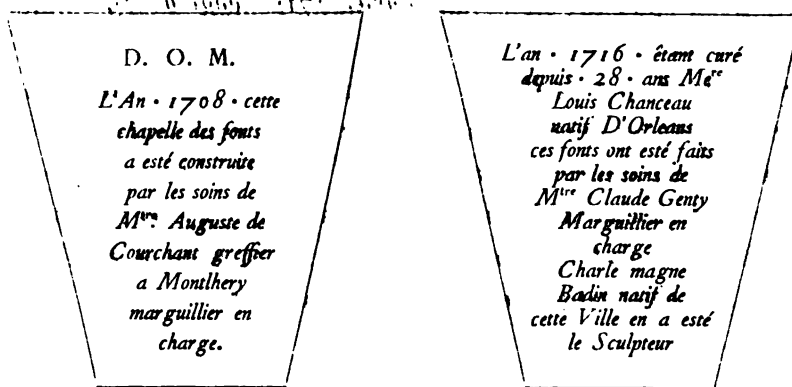 D. O. M.
L'An · 1708 · cette
chapelle des fonts
a esté construite
par les soins de
Mtre. Auguste de
Courchant greffier
a Montlhery
marguillier en
charge.
L'an · 1716 · êtant curé
depuis · 28 · ans Metre
Louis Chanceau
natif D'Orleans
ces fonts ont esté faits
par les soins de
Mtre Claude Genty
Marguillier en
charge
Charle magne
Badin natif de
cette Ville en a esté
le Sculpteur